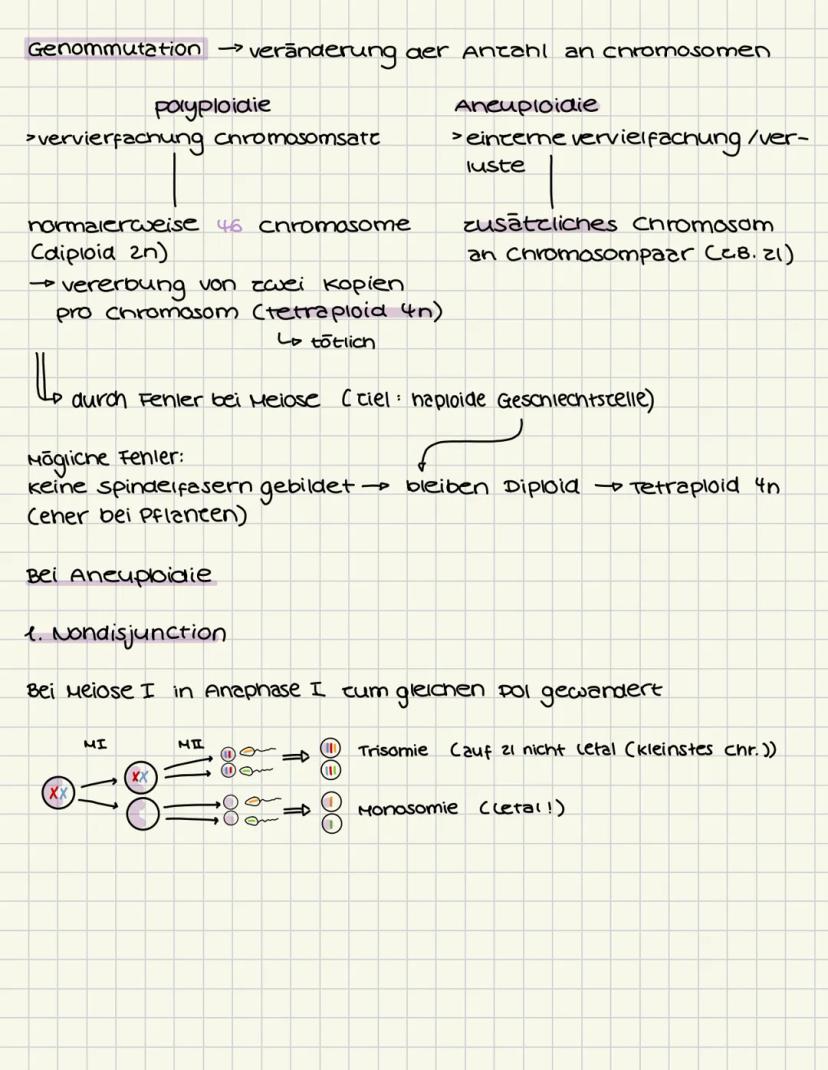 Genommutation → veränderung der Anzahl an chromosomen
polyploidie
> vervierfachung chromosomsatz
normalerweise 46 chromosome
(diploid 2n)
→ vererbung von zwei Kopien
pro chromosom (tetraploid 4n)
↳ tötlich
Aneuploidie
> einzelne vervielfachung /ver-
luste
zusätzliches Chromosom
an Chromosompaar (z.B. 21)
↳ durch Fehler bei Meiose (ziel: haploide Geschlechtszelle)
Mögliche Fehler:
Keine Spindelfasern gebildet → bleiben Diploid → Tetraploid 4n
(eher bei Pflanzen)
Bei Aneuploidie
1. Nondisjunction
Bei Meiose I in Anaphase I zum gleichen Pol gewandert
MI MII
Trisomie (auf 21 nicht letal (kleinstes chr.))
Monosomie (letal!)